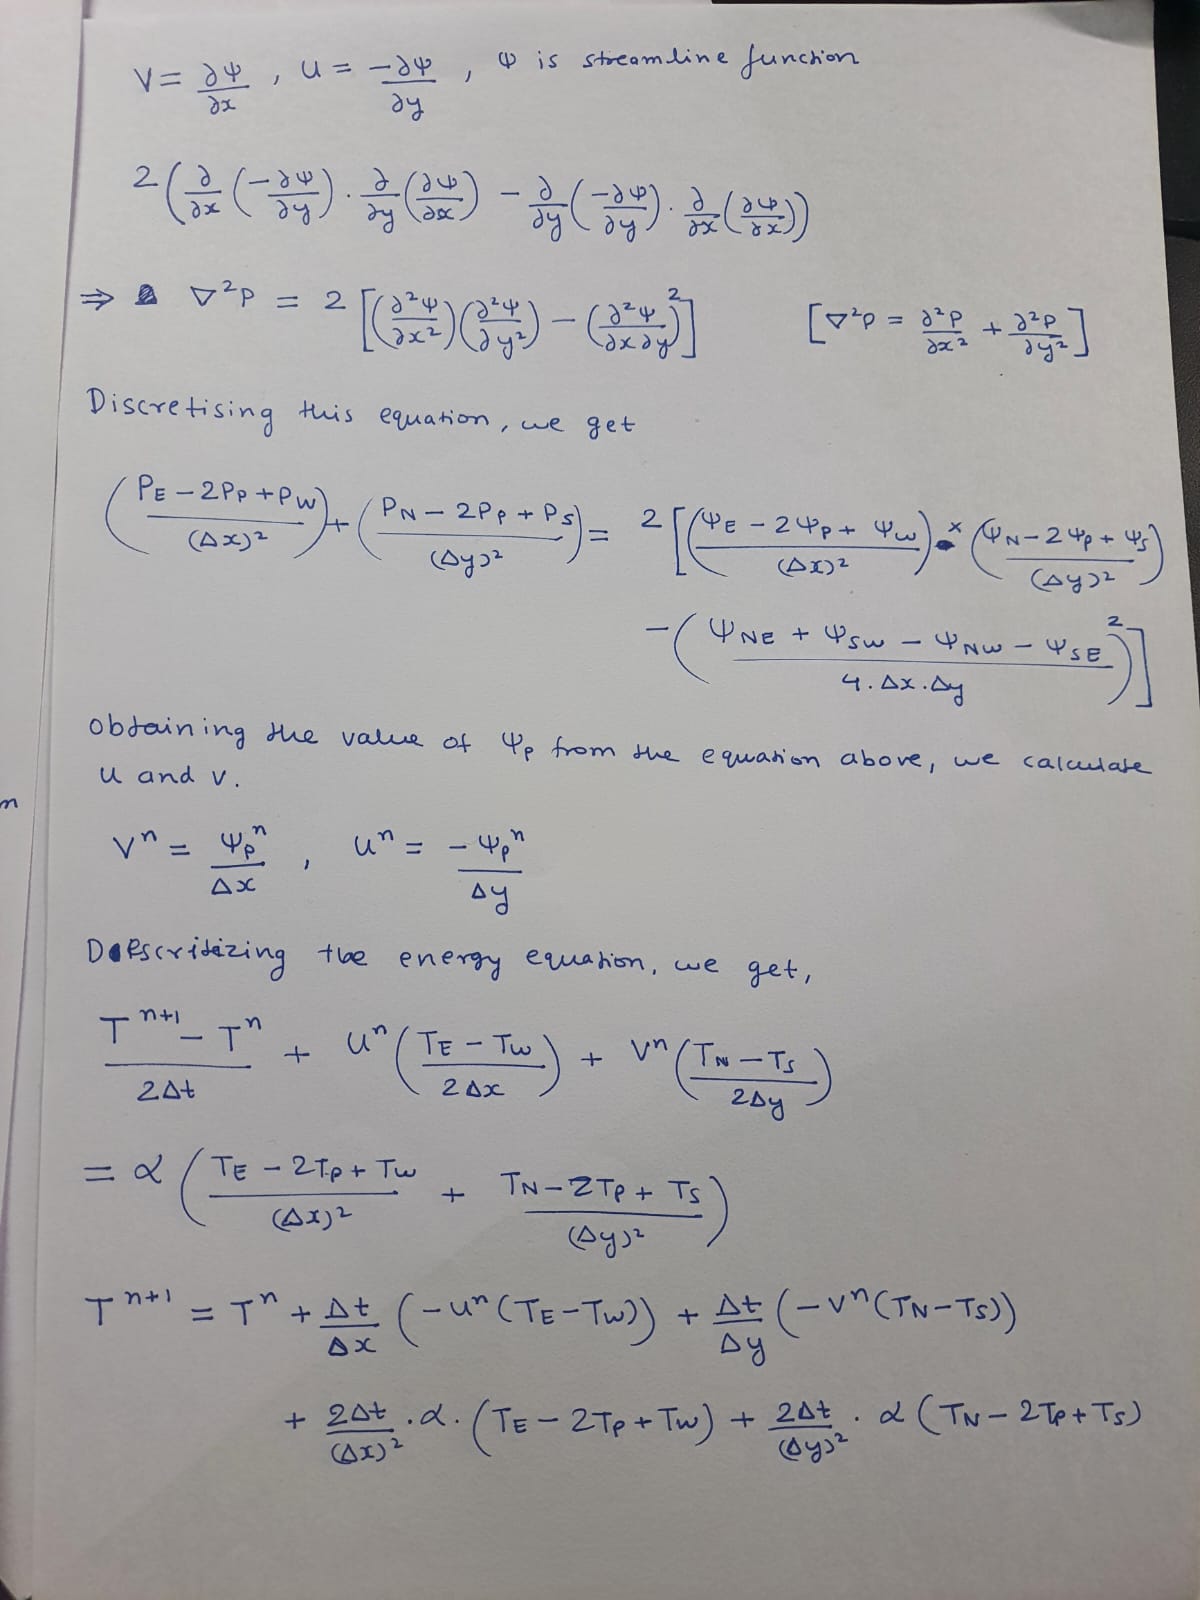 V = ∂ψ/∂x , u = -∂ψ/∂y , ψ is streamline function
2(∂/∂x(-∂ψ/∂y) · ∂/∂y(∂ψ/∂x) - ∂/∂y(-∂ψ/∂y) · ∂/∂x(∂ψ/∂x))
⇒ ∇²P = 2[(∂²ψ/∂x²)(∂²ψ/∂y²) - (∂²ψ/∂x∂y)²] [∇²P = ∂²P/∂x² + ∂²P/∂y²]
Discretising this equation, we get
(P_E - 2P_P + P_W/(Δx)²) + (P_N - 2P_P + P_S/(Δy)²) = 2[(ψ_E - 2ψ_P + ψ_W/(Δx)²) × (ψ_N - 2ψ_P + ψ_S/(Δy)²)
- (ψ_NE + ψ_SW - ψ_NW - ψ_SE/4.Δx.Δy)²]
obtaining the value of ψ_P from the equation above, we calculate
u and v.
Vⁿ = ψ_Pⁿ/Δx , uⁿ = -ψ_Pⁿ/Δy
Descritizing the energy equation, we get,
Tⁿ⁺¹ - Tⁿ/2Δt + uⁿ(T_E - T_W/2Δx) + Vⁿ(T_N - T_S/2Δy)
= α(T_E - 2T_P + T_W/(Δx)² + T_N - 2T_P + T_S/(Δy)²)
Tⁿ⁺¹ = Tⁿ + Δt/Δx (-uⁿ(T_E - T_W)) + Δt/Δy (-Vⁿ(T_N - T_S))
+ 2Δt/(Δx)² . α . (T_E - 2T_P + T_W) + 2Δt/(Δy)² . α (T_N - 2T_P + T_S)